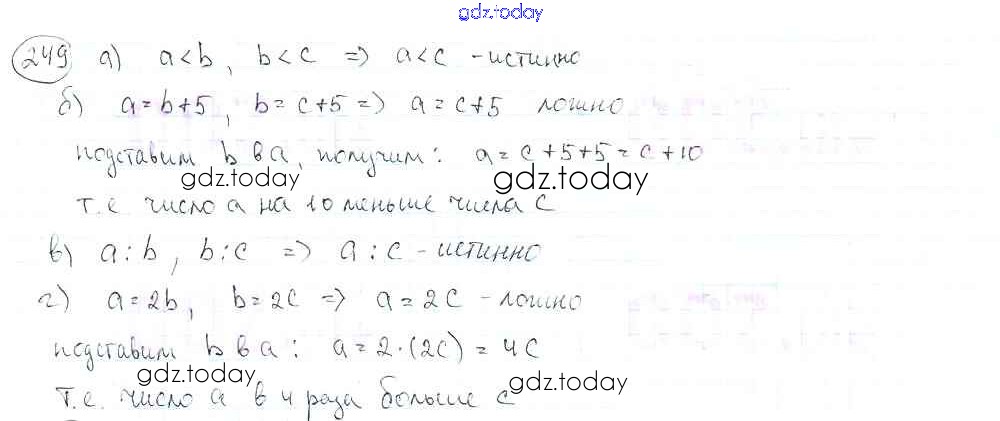 gdz.today
249 а) a<b, b<c => a<c - истинно
б) a=b+5, b=c+5 => a=c+5 ложно
подставим b в a, получим: a=c+5+5=c+10
gdz.today gdz.today
т.е число a на 10 меньше числа c
в) a:b, b:c => a:c - истинно
г) a=2b, b=2c => a=2c - ложно
подставим b в a: a=2·(2c)=4c
gdz.today gdz.today
т.е. число a в 4 раза больше c